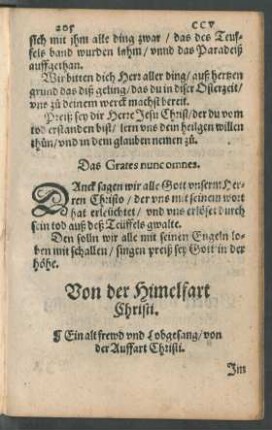 205 CCV
sich mit jhm alle ding zwar / das des Teuf-
fels band wurden lahm / vnnd das Paradeiß
auffgethan.
Wir bitten dich Herr aller ding / auß hertzen
grund das diß geling / das du in diser Osterzeit /
vns zů deinem werck machst bereit.
Preiß sey dir Herre Jesu Christ / der du vom
tod erstanden bist / lern vns dein heilgen willen
thůn / vnd in dem glauben nemen zů.
Das Grates nunc omnes.
DAnck sagen wir alle Gott vnserm Her-
ren Christo / der vns mit seinem wort
hat erleüchtet / vnd vns erlöset durch
sein tod auß deß Teüffels gwalte.
Den solln wir alle mit seinen Engeln lo-
ben mit schallen / singen preiß sey Gott in der
höhe.
Von der Himelfart
Christi.
¶ Ein alt frewd vnd Lobgesang / von
der Auffart Christi.
Im